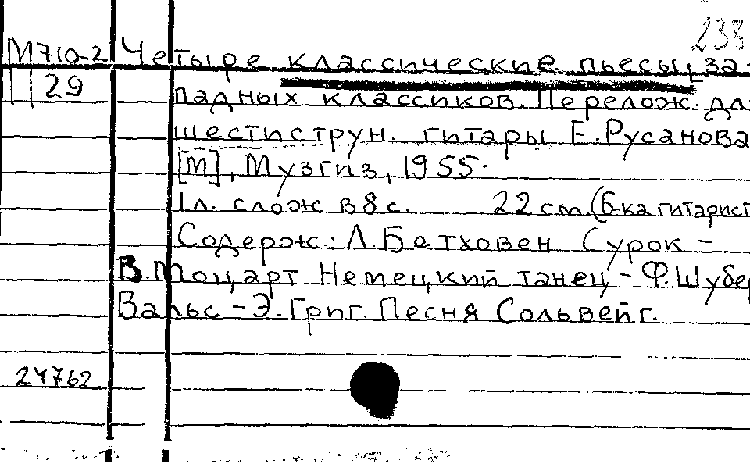 233
М710-2 Четыре классические пьесы за-
29 падных классиков. Перелож. для
шеститрун. гитары Е. Русанова
[М], Музгиз, 1955.
1л. слож в 8 с. 22 см. (Б-ка гитарист
Содерж: Л. Бетховен Сурок -
В. Моцарт Немецкий танец - Ф. Шубер
Вальс - Э. Григ. Песня Сольвейг.
24762